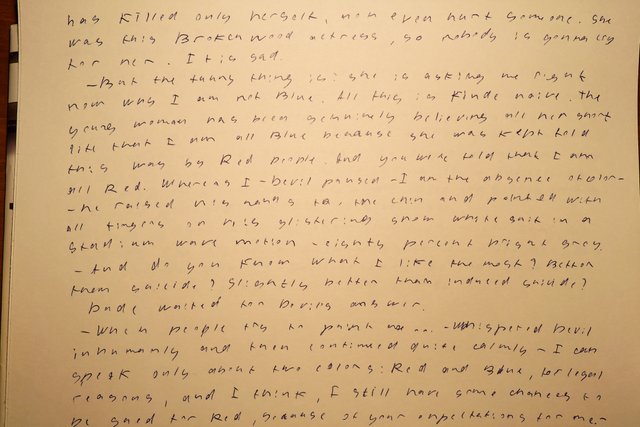 has killed only herself, non even hurt someone. She
was this Brokenwood actress, so nobody is gonna cry
for her. It is sad.
- But the funny thing is: she is asking me right
now why I am not Blue. All this is kinda naive. The
young woman has been genuinely believing all her short
life that I am all Blue because she was kept told
this way by Red people. And you were told that I am
all Red. Whereas I - Devil paused - I am the absence of color -
- he raised his hands to the chin and pointed with
all fingers on his glistering snow white suit in a
stadium wave motion - eighty percent bright grey.
- And do you know what I like the most? Better
then suicide? Slightly better than induced suicide?
Dude waited for Devil's answer.
- When people try to paint me... - whispered Devil
inhumanly and then continued quite calmly - I can
speak only about two colors: Red and Blue, for legal
reasons, and I think, I still have some chances to
be sued for Red, because of your expectations for me. -